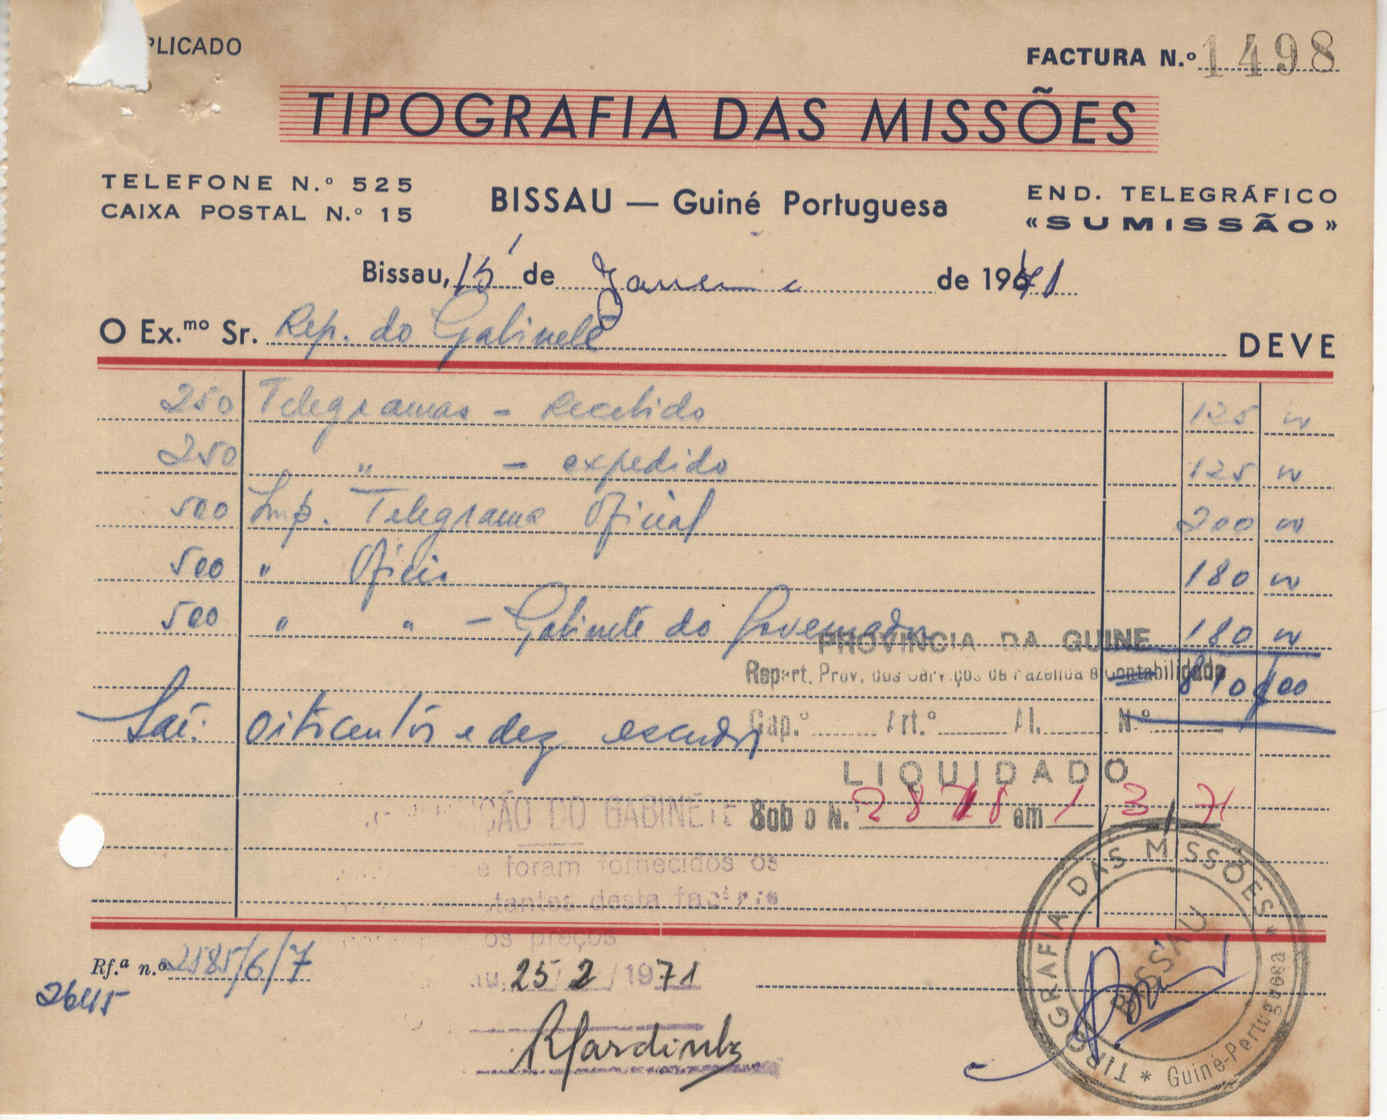 PLICADO
FACTURA N.º 1498
TIPOGRAFIA DAS MISSÕES
TELEFONE N.º 525
CAIXA POSTAL N.º 15
BISSAU — Guiné Portuguesa
END. TELEGRÁFICO
«SUMISSÃO»
Bissau, 15 de Janeiro de 1971
O Ex.mo Sr. Rep. do Gabinete DEVE
250 Telegramas - Recebido 125
250 " - expedido 125
500 Imp. Telegrama Oficial 200
500 " Ofício 180
500 " " - Gabinete do Governador 180
PROVINCIA DA GUINE
Repart. Prov. dos Serviços de Fazenda e Contabilidade
810$00
Saê: Oitocentos e dez escudos
Cap.º Art.º Al. N.º
LIQUIDADO
Sob o N.º 2878 em 1/3/71
ÇÃO DO GABINETE
e foram fornecidos os
tantes desta factura
os preços
Rf.ª n.º 2585/6/7
2645
25 2 1971
TIPOGRAFIA DAS MISSÕES * Guiné-Portuguesa *
BISSAU